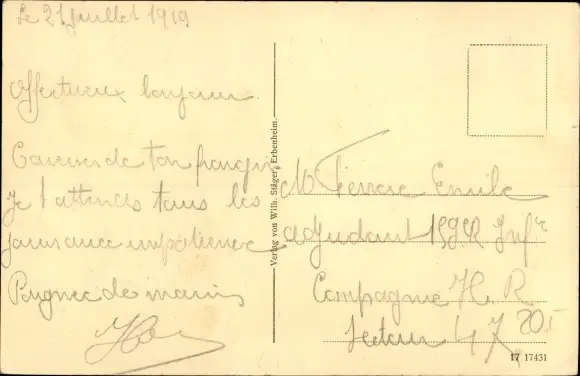 Le 21 juillet 1919
Affectueux bonjour.
Caresses de ton frangin
Je t'attends tous les
jours avec impatience
Poignee de mains
Verlag von Wilh. Stäger, Erbenheim.
Mr Pierrare Emile
adjudant 159 R Infre
Compagnie H. R
Secteur 47
20,-
17 17431